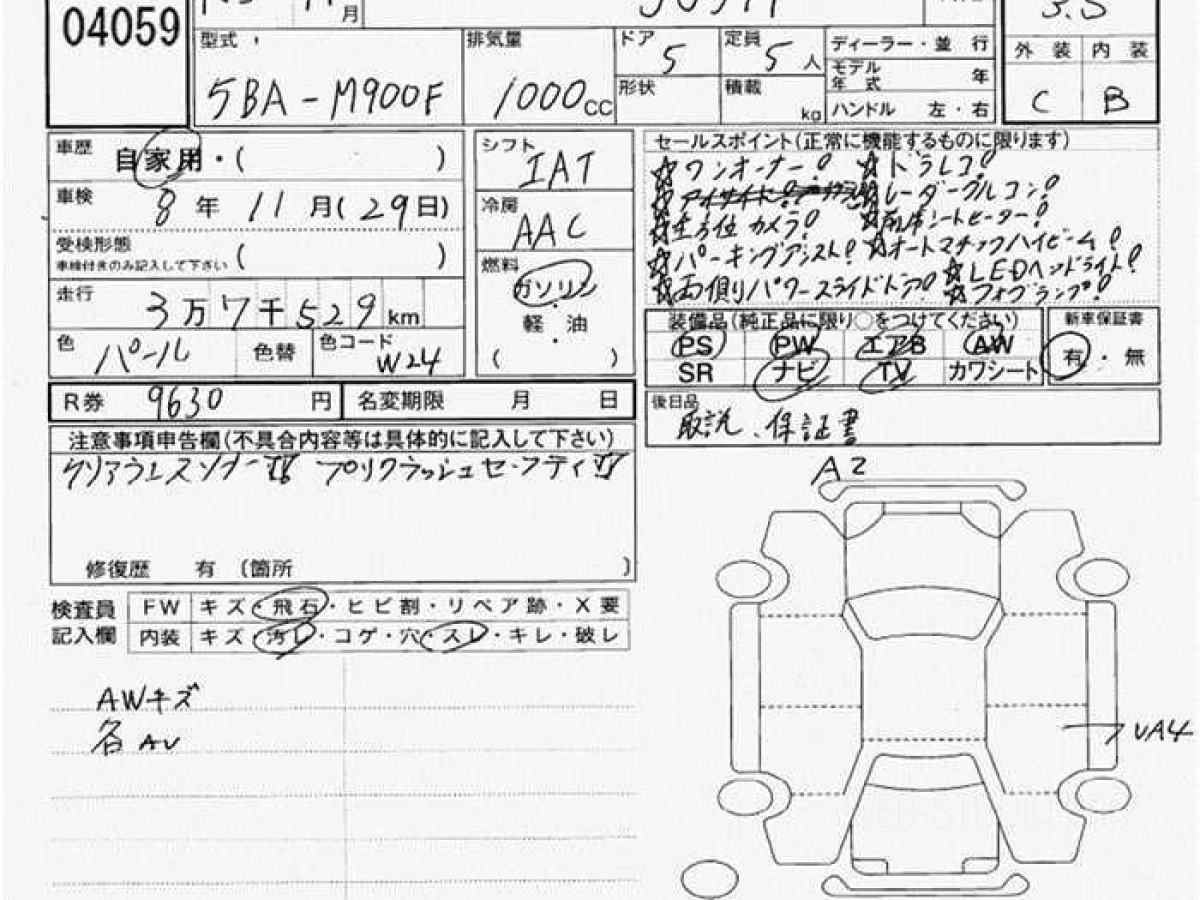 04059
月
3.5
型式
5BA-M900F
排気量
1000 CC
ドア 5
定員 5 人
形状
積載 kg
ディーラー・並 行
モデル年式 年
ハンドル 左・右
外 装 内 装
C B
車歴 自家用・( )
車検 8 年 11 月(29日)
受検形態
車検付きのみ記入して下さい ( )
走行 3万7千529 km
色 パール 色替 色コード W24
シフト IAT
冷房 AAC
燃料
ガソリン
・
軽 油
・
( )
R券 9630 円 名変期限 月 日
セールスポイント(正常に機能するものに限ります)
☆ワンオーナー! ☆ドラレコ!
☆レーダークルコン!
☆全方位カメラ! シートヒーター!
☆パーキングアシスト! ☆オートマチックハイビーム!
☆両側パワースライドドア! ☆LEDヘッドライト!
☆フォグランプ!
装備品(純正品に限り○をつけてください)
PS PW エアB AW
SR ナビ TV カワシート
新車保証書
有・無
後日品
取説、保証書
注意事項申告欄(不具合内容等は具体的に記入して下さい)
クリアランスソナー プリクラッシュセーフティ
修復歴 有 (箇所 )
検査員
記入欄
FW キズ・飛石・ヒビ割・リペア跡・X要
内装 キズ・汚レ・コゲ・穴・スレ・キレ・破レ
AWキズ
各AU
A2
UA4